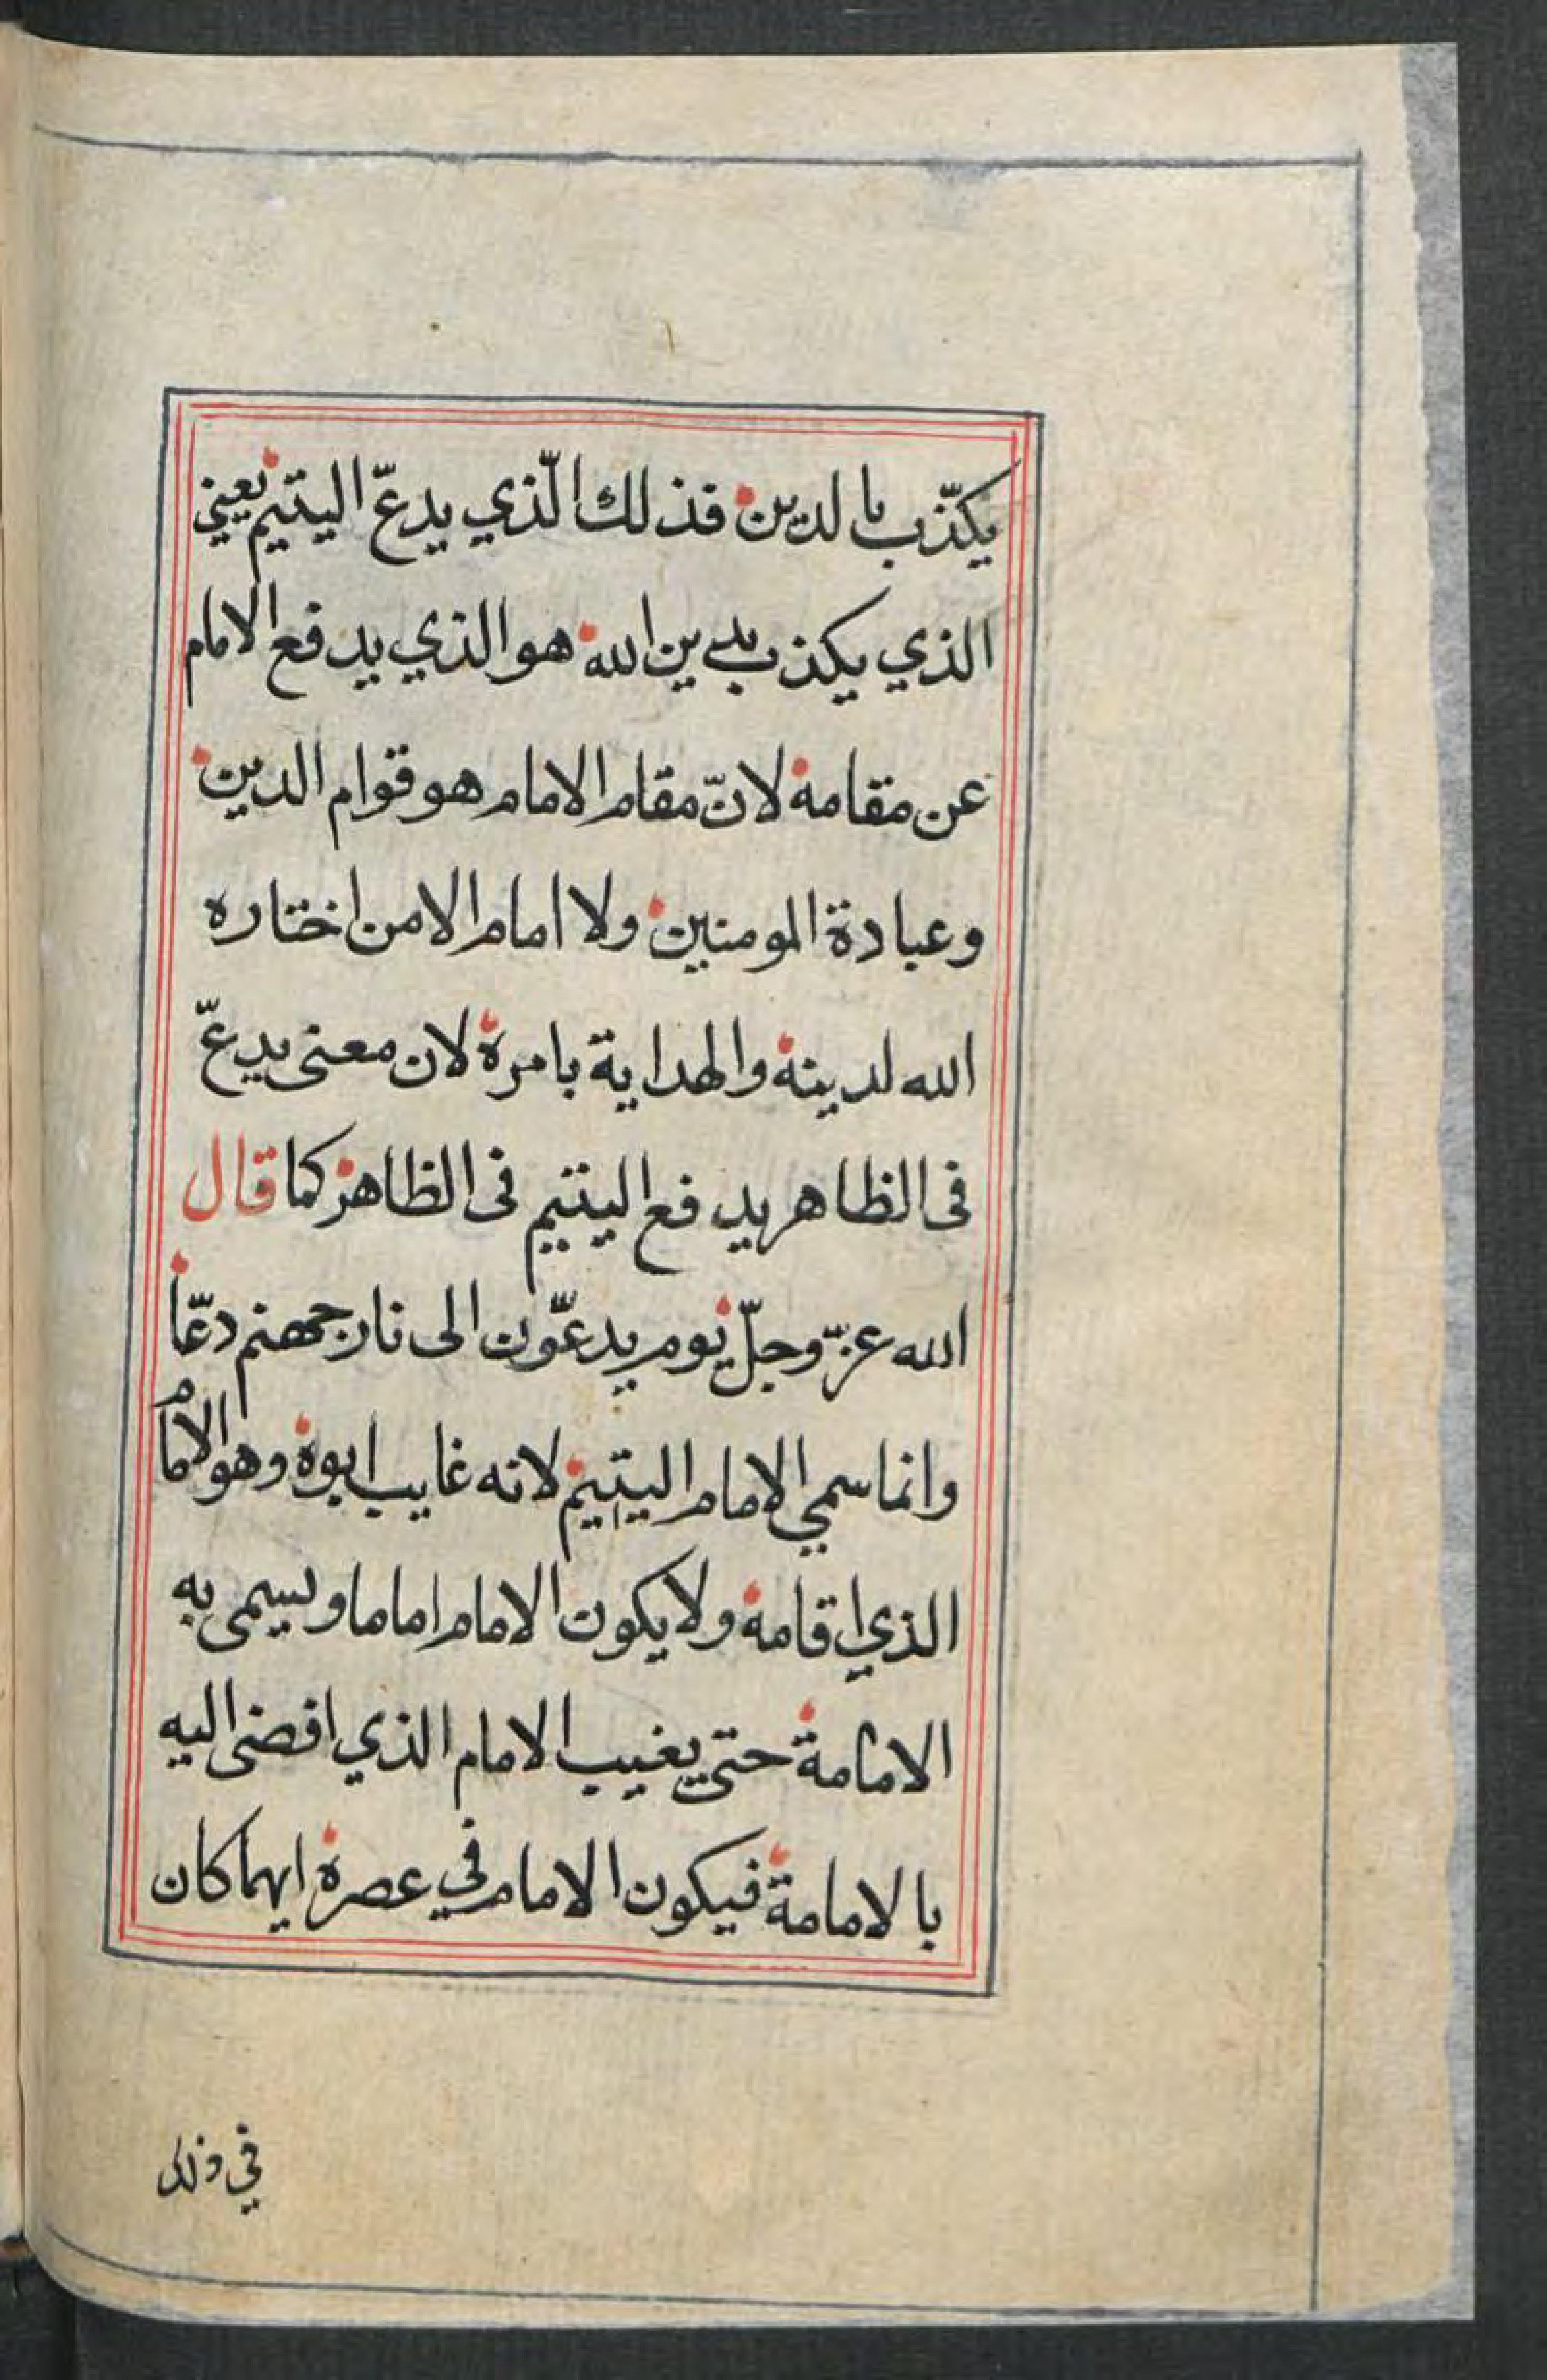 يكذّب بالدين فذلك الّذي يدعّ اليتيم يعني
الذي يكذب بدين الله هو الذي يدفع الامام
عن مقامه لانّ مقام الامام هو قوام الدين
وعبادة المومنين ولا امام الا من اختاره
الله لدينه والهداية بامره لان معنى يدعّ
فى الظاهر يدفع اليتيم فى الظاهر كما قال
الله عزّ وجلّ يوم يدعّون الى نار جهنم دعّا
وانما سمي الامام اليتيم لانه غايب ابوه وهو الامام
الذي اقامه ولا يكون الامام اماما ويسمى به
الامامة حتى يغيب الامام الذي افضى اليه
بالامامة فيكون الامام في عصره ايهما كان
في ذلك